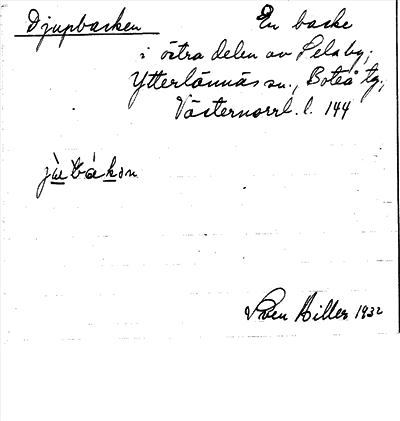 Djupbacken En backe
i östra delen av Lelaby,
Ytterlännäs sn., Boteå tg.,
Västernorrl. l. 144
jùbákən
Sven Hiller 1932